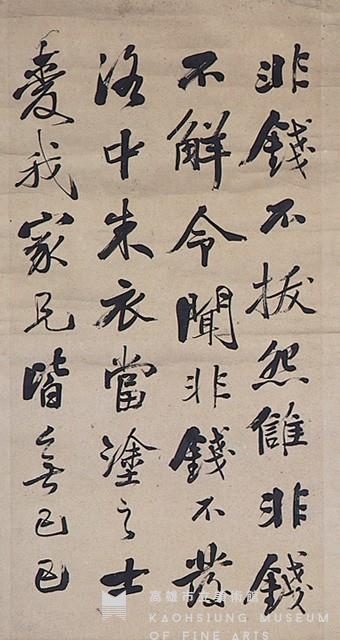 非錢不拔怨讎非錢
不解令聞非錢不發
洛中朱衣當塗之士
愛我家兄皆無已已
高雄市立美術館
KAOHSIUNG MUSEUM
OF FINE ARTS